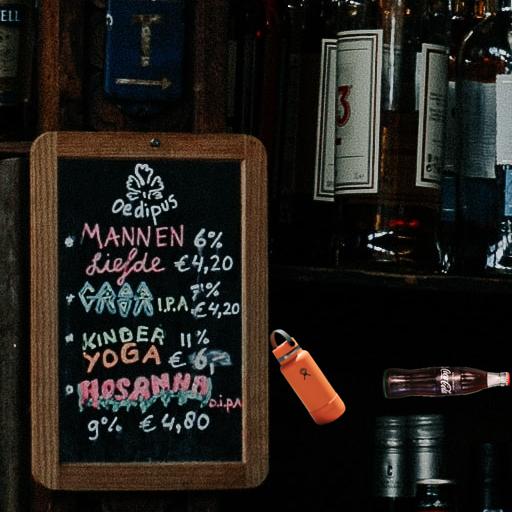 ELL
Oedipus
MANNEN 6%
Liefde €4,20
GAIA I.P.A 7%
€4,20
KINDER 11%
YOGA € 6,-
HOSANNA D.I.P.A
9% €4,80
3
Coca-Cola